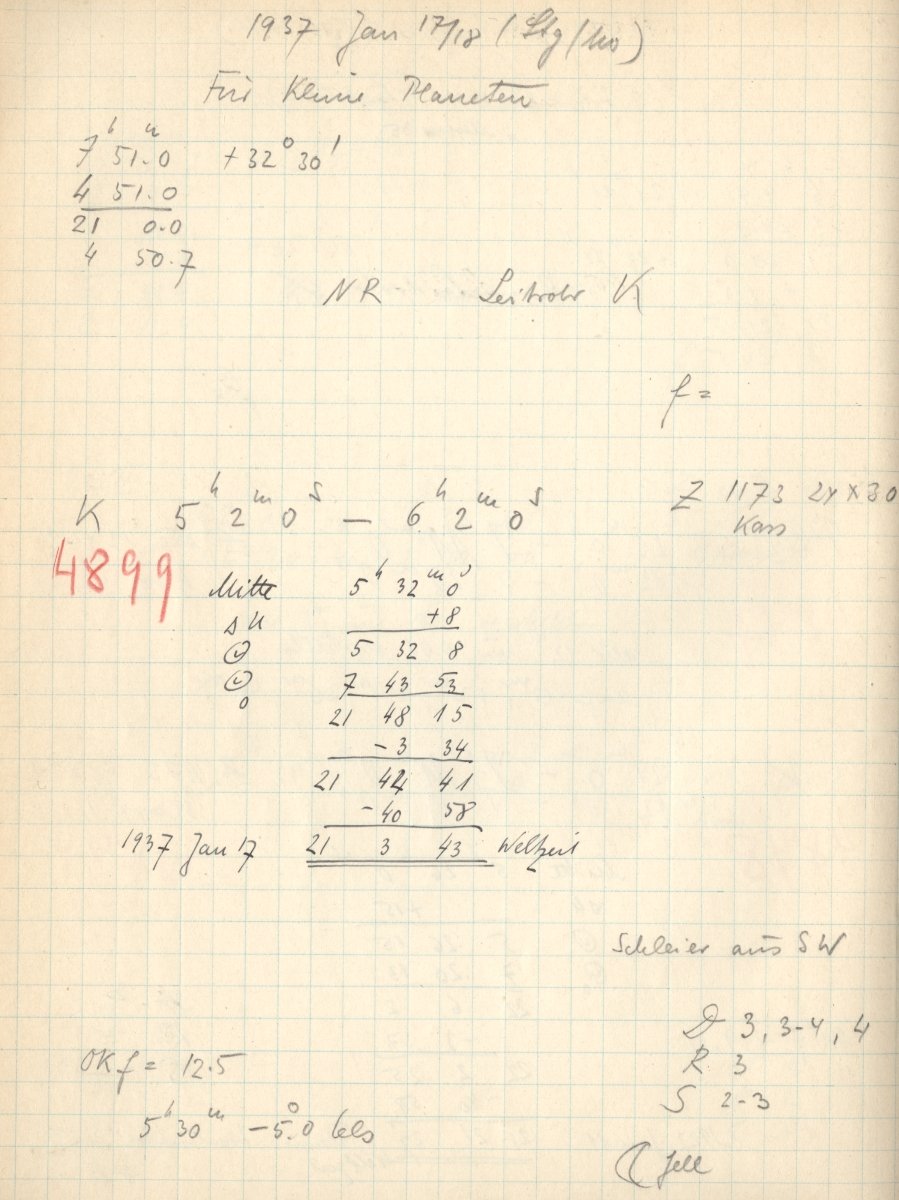 1937 Jan 17/18 (Stg/ho)
Für Kleine Planeten
7 h 51.0 m + 32° 30'
4 51.0
21 0.0
4 50.7
NR Leitrohr K
f =
K 5 h 2 m 0 s — 6 h 2 m 0 s
Z 1173 24 x 30
Kass
4899
Mitte 5 h 32 m 0
Δu +8
5 32 8
7 43 53
21 48 15
-3 34
21 44 41
-40 58
1937 Jan 17 21 3 43 Weltzeit
Schleier aus SW
D 3, 3-4, 4
R 3
S 2-3
OK f = 12.5
5 h 30 m -5.°0 Cels
hell